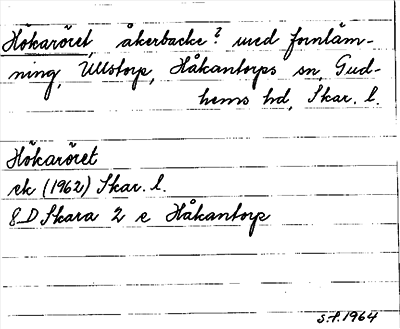 Hökaröret, åkerbacke? med fornläm-
ning, Ullstorp, Håkantorps sn, Gud-
hems hd, Skar. l.
Hökaröret
ek (1962) Skar. l.
8D Skara 2 e Håkantorp
S.F. 1964